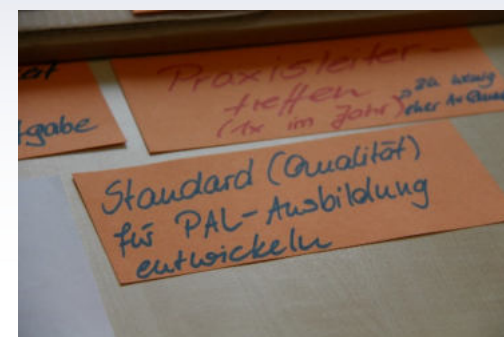 at
gabe
Praxisleiter-
treffen
(1x im Jahr)
zu wenig
eher 1x Quar
Standard (Qualität)
für PAL-Ausbildung
entwickeln